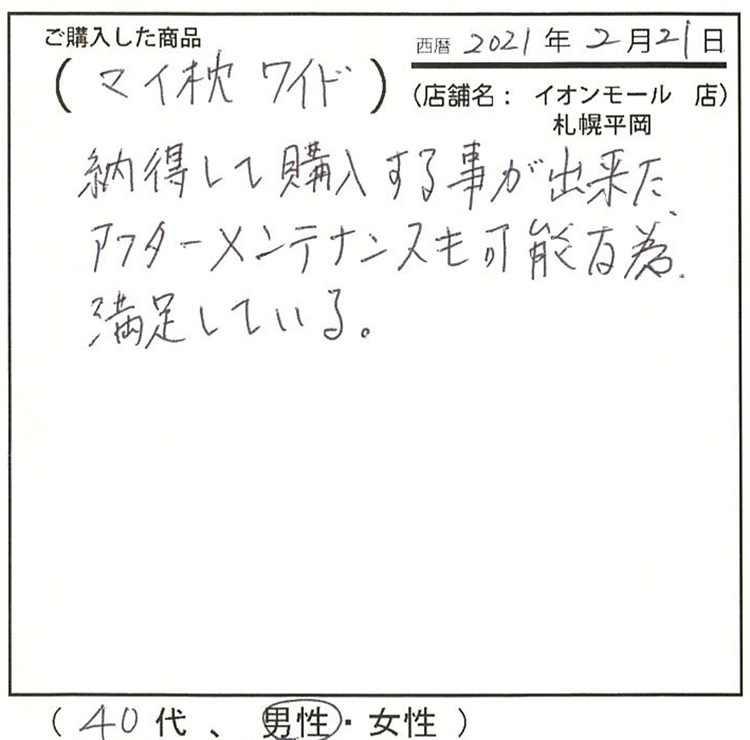 ご購入した商品
西暦 2021 年 2月21日
(マイ枕 ワイド)
(店舗名： イオンモール 店)
札幌平岡
納得して購入する事が出来た、
アフターメンテナンスも可能な為、
満足している。
(40代、男性・女性)